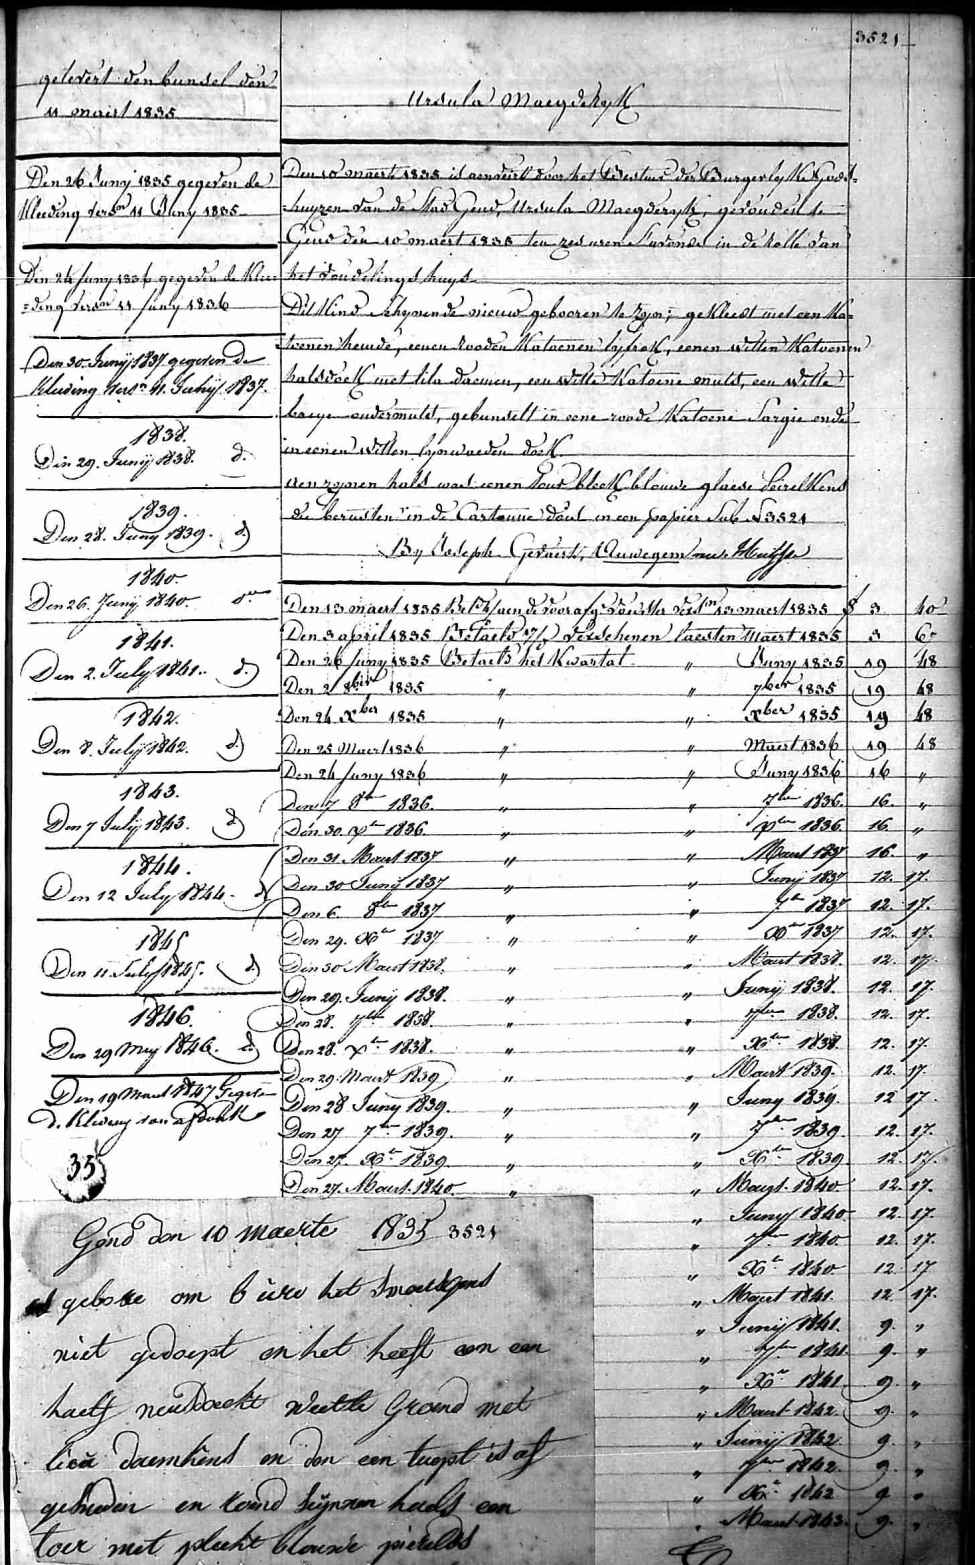 3521
gelevert den bundel den
11 maart 1835
Ursula Maegderyk
Den 26 Juny 1835 gegeven de
Kleeding versn 11 Juny 1835
Den 24 Juny 1836 gegeven de Klee=
=ding versn 11 Juny 1836
Den 30. Junij 1837 gegeven de
Kleeding Versn 11. Junij 1837.
1838.
Den 29. Junij 1838. do.
1839.
Den 28. Juny 1839. do
1840.
Den 26. Junij 1840. do
1841.
Den 2. July 1841. do
1842.
Den 8. Julij 1842. do
1843.
Den 7 Julij 1843. do
1844.
Den 12 July 1844. do
1845
Den 11. July 1845. do
1846.
Den 29 Mey 1846. do
Den 19 Maart 1847 Gegeven
de Kleeding
35
Den 10 maert 1835 is aenveirt door het Bestuer der Burgerlyke Gods=
=huyzen van de Stad Gend, Ursula Maegderyk, gevonden te
Gend den 10 maert 1835 ten zes uren s'avonds in de rolle van
het vondelingshuys
Dit Kind schynende nieuw gebooren te zyn; gekleed met een ka=
toenen hemde, eenen rooden Katoenen lyfrok, eenen witten Katoenen
halsdoek met lila daemen, een witte Katoene muts, een witte
baeye ondermuts, gebunselt in eene roode Katoene Sargie ende
in eenen witten lynwaeden doek.
aen zynen hals was eenen Tour bleek blouwe glaese Peirelkens
die berusten in de Cartonne doos in een papier Sub N 3521
By Joseph Gevaert, Auwegem
Den 13 maert 1835 maert 1835 f 3 40
Den 3 april 1835 Betaeld verschenen laesten Maert 1835 3 60
Den 26 Juny 1835 Betaelt het Kwartal " Juny 1835 19 48
Den 2 8ber 1835 " " 7ber 1835 19 48
Den 24 Xber 1835 " " Xber 1835 19 48
Den 25 Maert 1836 " " Maert 1836 19 48
Den 24 Juny 1836 " " Juny 1836 16 "
Den 7 8br 1836. " " 7br 1836. 16. "
Den 30. Xbr 1836. " " Xbr 1836 16. "
Den 31 Maert 1837 " " Maert 1837 16. "
Den 30 Junij 1837 " " Junij 1837 12. 17.
Den 6. 8br 1837 " " 7br 1837 12. 17.
Den 29. Xbr 1837 " " Xbr 1837 12. 17.
Den 30 Maert 1838. " " Maert 1838. 12. 17.
Den 29. Junij 1838. " " Junij 1838. 12. 17.
Den 28. 7br 1838. " " 7br 1838. 12. 17.
Den 28. Xbr 1838. " " Xbr 1838 12. 17.
Den 29. Maert 1839 " " Maert 1839. 12. 17
Den 28 Juny 1839. " " Juny 1839. 12 17
Den 27 7br 1839. " " 7br 1839. 12. 17.
Den 27. Xbr 1839. " " Xbr 1839 12. 17.
Den 27. Maert. 1840. " " Maert. 1840 12. 17.
" Juny 1840 12. 17.
" 7br 1840 12. 17.
" Xbr 1840 12 17
" Maert 1841. 12 17.
" Junij 1841. 9. "
" 7br 1841 9. "
" Xbr 1841 9. "
" Maert 1842. 9. "
" Junij 1842 9. "
" 7br 1842. 9. "
" Xbr 1842 9 "
" Maert 1843. 9. "
Gend den 10 maerte 1835 3521
gebore om 6 ure het smorgens
niet gedoept en het heeft een een
haelf neusdoekt wette Grond met
lila daemkens en den een tuept is af
gesneden en rond seynen hals een
toer met pleekt blouwe pierels